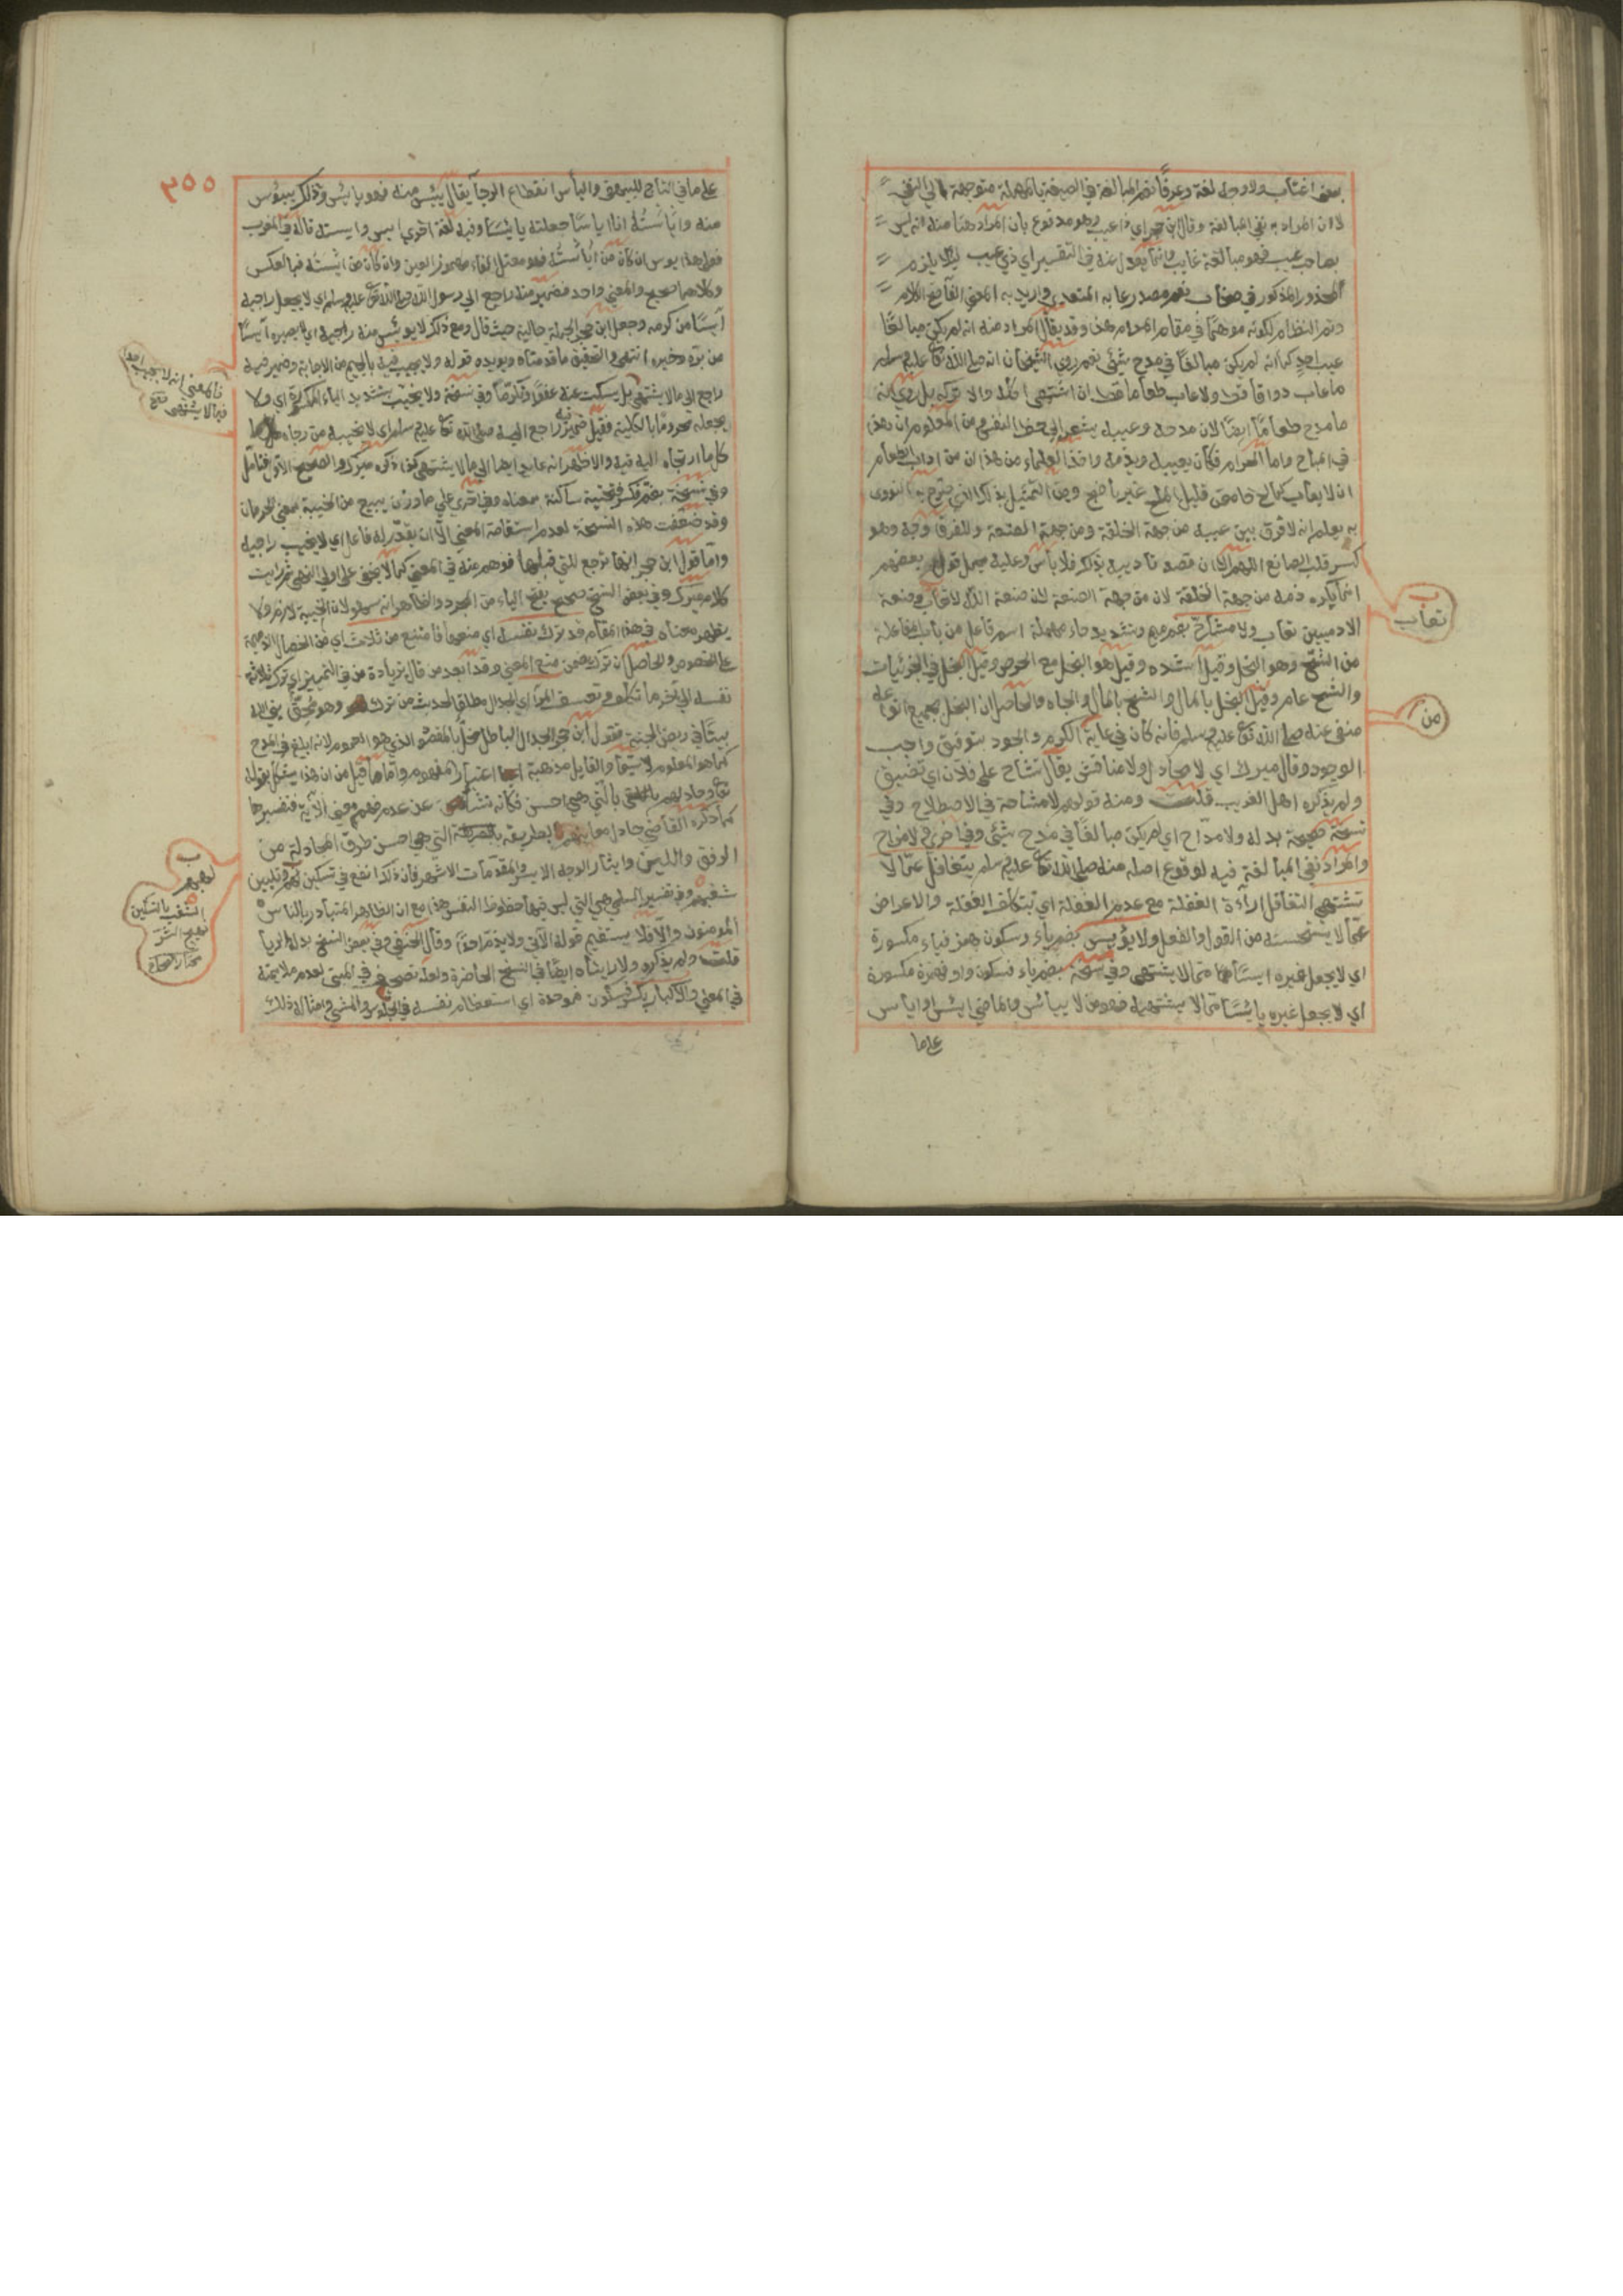 بمعنى اغتاب ولا وجه له لغة وعرفا نعم المبالغة في الصيغة بالمهملة متوجهة الى النفي
لان المراد به نفي المبالغة وقال ابن حجر اي ذا عيب وهو مدفوع بان المراد هنا منه انه ليس
بصاحب عيب فهو مبالغة عايب وانما يعدل عنه في التفسير اي ذي عيب ليلا يلزم
المحذور المذكور في صخاب نعم مصدر عابه المتعدي واريد به المعنى الفاعل اللازم
وتم النظام لكونه موهما في مقام المرام هذا وقد يقال المراد منه انه لم يكن مبالغا
عيب احد كما انه لم يكن مبالغا في مدح شئ نعم روى الشيخان انه صلى الله تعالى عليه وسلم
ما عاب ذواقا قط ولا عاب طعاما قط ان اشتهى اكله والا تركه بل روي انه
ما مدح طعاما ايضا لان مدحه وعيبه يشعر الى حظ النفس من المعلوم ان هذا
في المباح واما الحرام فكان يعيبه ويذمه واخذ العلماء من هذا ان من اداب الطعام
ان لا يعاب كمالح حامض قليل الملح غير ناضج ومن التمثيل بذلك الذي صرح به النووي
به يعلم انه لا فرق بين عيبه من جهة الخلقة ومن جهة الصنعة وللفرق وجه وهو
كسر قلب الصانع اللهم الا ان قصد تاديبه بذلك فلا بأس وعليه يحمل قول بعضهم
انما يكره ذمه من جهة الخلقة لا من جهة الصنعة لان صنعة الله لا تعاب وصنعة
الادميين تعاب ولا مشاح بضم ميم وتشديد حاء مهملة اسم فاعل من باب المفاعلة
من الشح وهو البخل وقيل اشده وقيل هو البخل مع الحرص وقيل البخل في الجزئيات
والشح عام وقيل البخل بالمال والشح بالمال والجاه والحاصل ان البخل بجميع انواعه
منفي عنه صلى الله تعالى عليه وسلم فانه كان في غاية الكرم والجود بتوفيق واجب
الوجود وقال ميرك اي لا مجادل ولا مناقش يقال تشاح على فلان اي تضيق
ولم يذكره اهل الغريب قلت ومنه قولهم لا مشاحة في الاصطلاح وفي
نسخة صحيحة بدله ولا مداح اي لم يكن مبالغا في مدح شئ وفي اخرى ولا مزاح
والمراد نفي المبالغة فيه لوقوع اصله منه صلى الله تعالى عليه وسلم يتغافل عما لا
تشتهي التغافل اراءة الغفلة مع عدم الغفلة اي يتكلف الغفلة والاعراض
عما لا يستحسنه من القول والفعل ولا يؤيس بضم ياء وسكون همز فياء مكسورة
اي لا يجعل غيره ايسا مما لا يشتهي وفي نسخة بضم ياء فسكون واو فهمزة مكسورة
اي لا يجعل غيره يائسا مما لا يشتهيه فهو من لا ييأس والماضي ايئس او اياس
على ما
تعاب
من
٣٥٥
على ما في التاج للبيهقي واليأس انقطاع الرجا يقال يئس منه فهو يائس وذلك ميؤس
منه وايأسته انا اياسا جعلته يائسا وفيه لغة اخرى ايس وايسته قاله في المغرب
فعلى هذا يوس ان كان من ايأسته فهو معتل الفاء مهموز العين وان كان من ايسته فبالعكس
وكلاهما صحيح والمعنى واحد فضمير منه راجع الى رسول الله صلى الله تعالى عليه وسلم اي لا يجعل راجيه
آيسا من كرمه وجعل ابن حجر الجملة حالية حيث قال ومع ذلك لا يوئس منه راجيه اي لا يصيره آيسا
من بره وخيره انتهى والتحقيق ما قدمناه ويؤيده قوله ولا يجيب فيه بالجيم من الاجابة وضمير فيه
راجع الى ما لا يشتهي بل يسكت عنه عفوا وتكرما وفي نسخة ولا يخيب بتشديد الياء المكسورة اي ولا
يجعله محروما بالكلية فقيل ضميره راجع اليه صلى الله تعالى عليه وسلم اي لا يخيب من رجاه
كل ما ارتجاه اليه فيه والاظهر انه عايد ايضا الى ما لا يشتهي كذا ذكره ميرك والصحيح الاول فتامل
وفي نسخة بفتح فكسر فتحتية ساكنة بمعناه وفي اخرى على ما وزن يبيع من الخيبة بمعنى الحرمان
وقد ضعفت هذه النسخة لعدم استقامة المعنى الا ان يقدر له فاعل اي لا يخيب راجيه
واما قول ابن حجر انها ترجع للتي قبلها فوهم عنه في المعنى كما لا يخفى على اولي النهى ثم رايت
كلام ميرك وفي بعض النسخ صحيح بفتح الياء من المجرد والظاهر انه سهو لان الخيبة لازم ولا
يظهر معناه في هذا المقام قد ترك نفسه اي منعها فامتنع من ثلاث اي من الخصال الذميمة
على الخصوص والحاصل ان ترك ضمن منع المعنى وقد ابعد من قال بزيادة من في التمييز اي ترك ثلاثة
نفسه الى آخر ما تكلف وتعسف المراء اي الجدال مطلقا لحديث من ترك المراء وهو محق بنى الله له
بيتا في ربض الجنة فقول ابن حجر الجدال الباطل مخل بالمقصود الذي هو العموم لانه ابلغ في المدح
كما هو المعلوم لا سيما والقايل مذهبه اعتبار المفهوم واما ما قيل من ان هذا يشكل بقوله
تعالى وجادلهم بالتي هي احسن فكانه نشأ عن عدم فهم معنى الآية فتفسيرها
كما ذكره القاضي جادل معانديهم بالطريقة التي هي احسن طرق المجادلة من
الرفق واللين وايثار الوجه الايسر والمقدمات الاشهر فان ذلك انفع في تسكين لهبهم وتليين
شغبهم وفي تفسير السلمي هي التي ليس فيها حظوظ النفس هذا مع ان الظاهر المتبادر بالناس
المومنون والا فلا يستقيم قوله الآتي ولا يذم احدا وقال الحنفي وفي بعض النسخ بدله الريا
قلت ولم يذكره ولا رايناه ايضا في النسخ الحاضرة ولعله تصحيف في المبنى لعدم ملايمته
في المعنى والاكبار بكسر فسكون فموحدة اي استعظام نفسه في الجلوس والمشي وامثال ذلك
فالمعنى انه لا يجيب احدا
فيما لا يشتهي
لهبهم
الشغب بالتسكين
تهييج الشر
مختار الصحاح